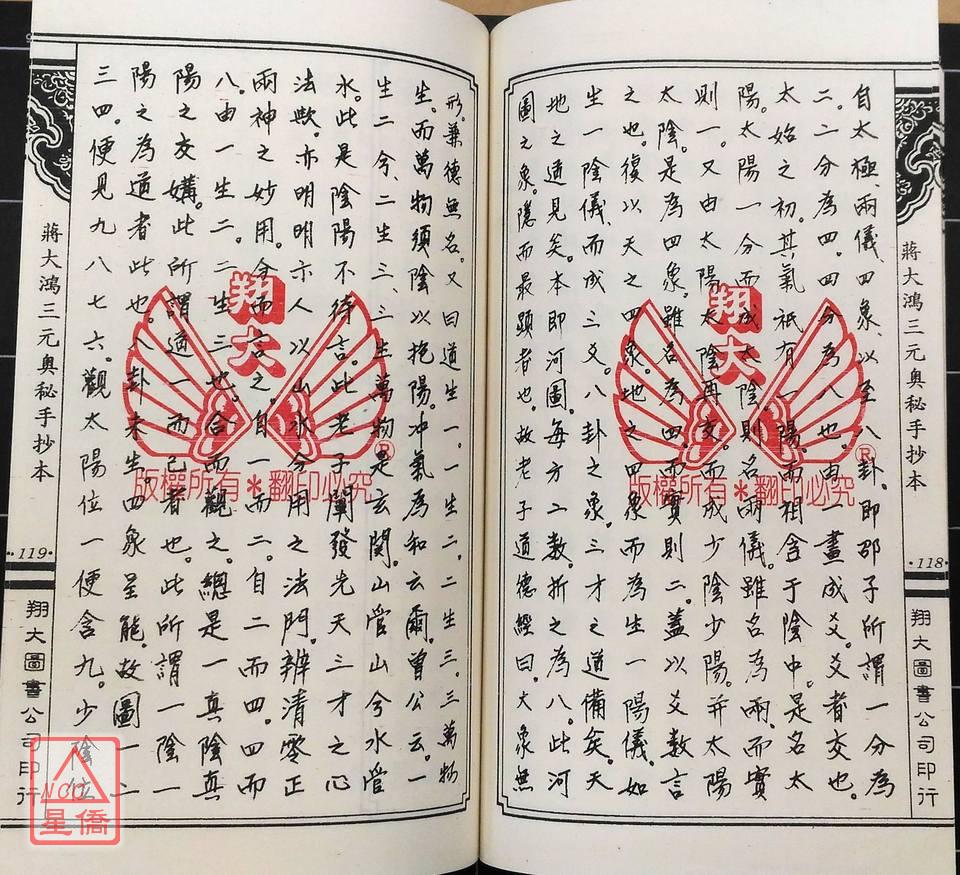 自太極、兩儀四象、以至八卦、即邵子所謂一分為
二。二分為四。四分為八也。由一畫成爻。爻者交也。
太始之初。其氣祇有一陽。而相含于陰中。是名太
陽。太陽一分而成太陰。則名兩儀。雖名為兩。而實
則一。又由太陽太陰再交。而成少陰少陽。并太陽
太陰。是為四象。雖名為四。而實則二。蓋以爻數言
之也。復以天之四象。地之四象而為生一陽儀。如
生一陰儀、而成三爻。八卦之象。三才之道備矣。天
地之道見矣。本即河圖。每方二數。折之為八。此河
圖之象。隱而最顕者也。故老子道德經曰。大象無
蔣大鴻三元奧秘手抄本
·118·
翔大圖書公司印行
形。兼德無名。又曰道生一。一生二。二生三。三萬物
生。而萬物須陰以抱陽。冲氣為和云爾。曾公云。一
生二兮、二生三、三生萬物是玄関。山管山兮水管
水。此是陰陽不待言。此老子闡發先天三才之心
法歟。亦明明示人以山水分用之法門。辨清零正
兩神之妙用。分而言之。自一而二。自二而四。四而
八。由一生二。二生三也。合而觀之。總是一真陰真
陽之交媾。此所謂通一而已者也。此所謂一陰一
陽之為道者此也。八卦未生。四象呈能。故圖一二
三四。便見九八七六。觀太陽位一便含九。少陰位
蔣大鴻三元奧秘手抄本
·119·
翔大圖書公司印行
翔大
®
版權所有*翻印必究
翔大
®
版權所有*翻印必究
NCC
星僑